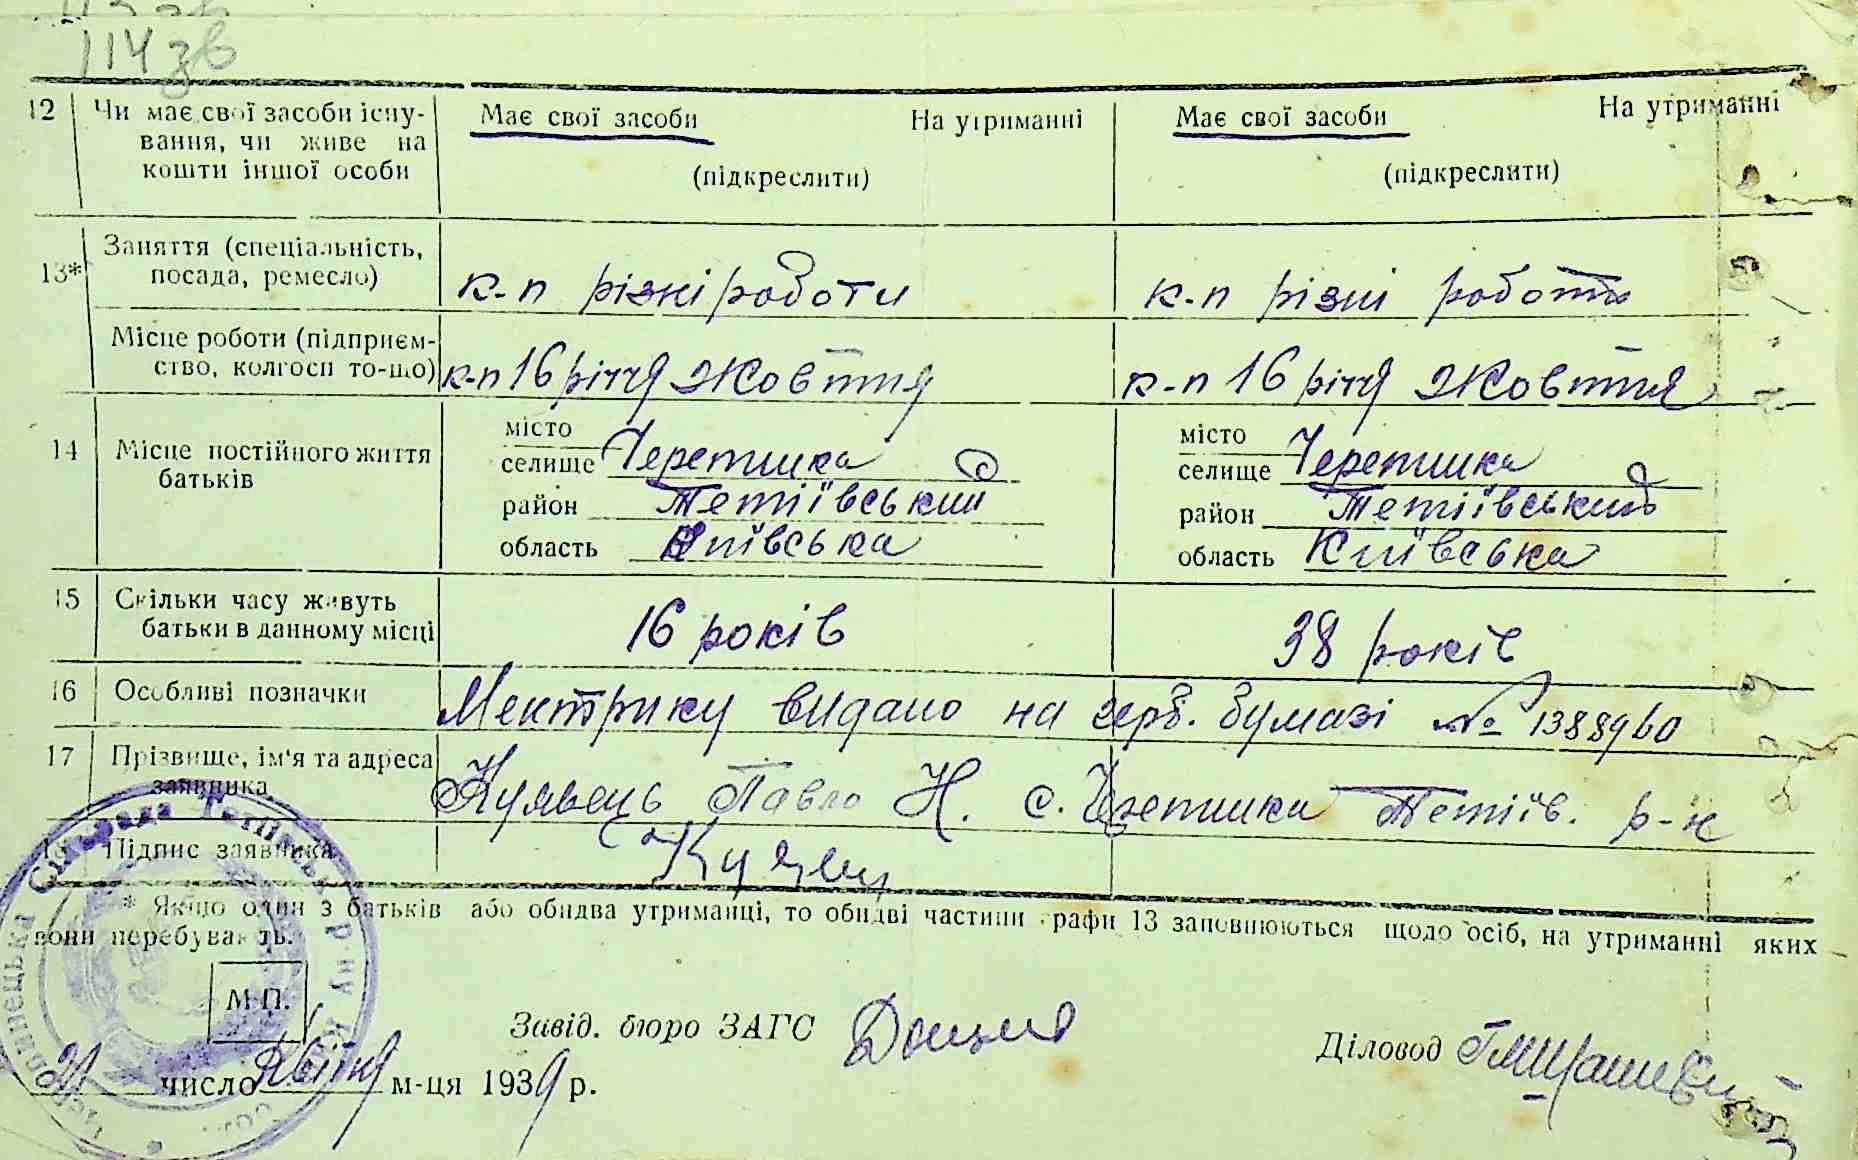 114 зв
12 Чи має свої засоби існу- Має свої засоби На утриманні Має свої засоби На утриманні
вання, чи живе на
кошти іншої особи (підкреслити) (підкреслити)
Заняття (спеціальність,
13* посада, ремесло) к-п різні роботи к-п різні роботи
Місце роботи (підприєм-
ство, колгосп то-що) к-п 16 річчя Жовтня к-п 16 річчя Жовтня
місто місто
14 Місце постійного життя селище Черепинка селище Черепинка
батьків район Тетіївський район Тетіївський
область Київська область Київська
15 Скільки часу живуть
батьки в данному місці 16 років 38 років
16 Особливі позначки Мектрику видано на герб. бумазі № 1388960
17 Прізвище, ім'я та адреса
заявника Павло Н. с. Черепинка Тетіїв. р-н
18 Підпис заявника
* Якщо один з батьків або обидва утриманці, то обидві частини графи 13 заповнюються щодо осіб, на утриманні яких
вони перебувають.
М.П.
Завід. бюро ЗАГС
Діловод
21 число Квітня м-ця 1939 р.
Сільрада Тетіївськ. р-ну